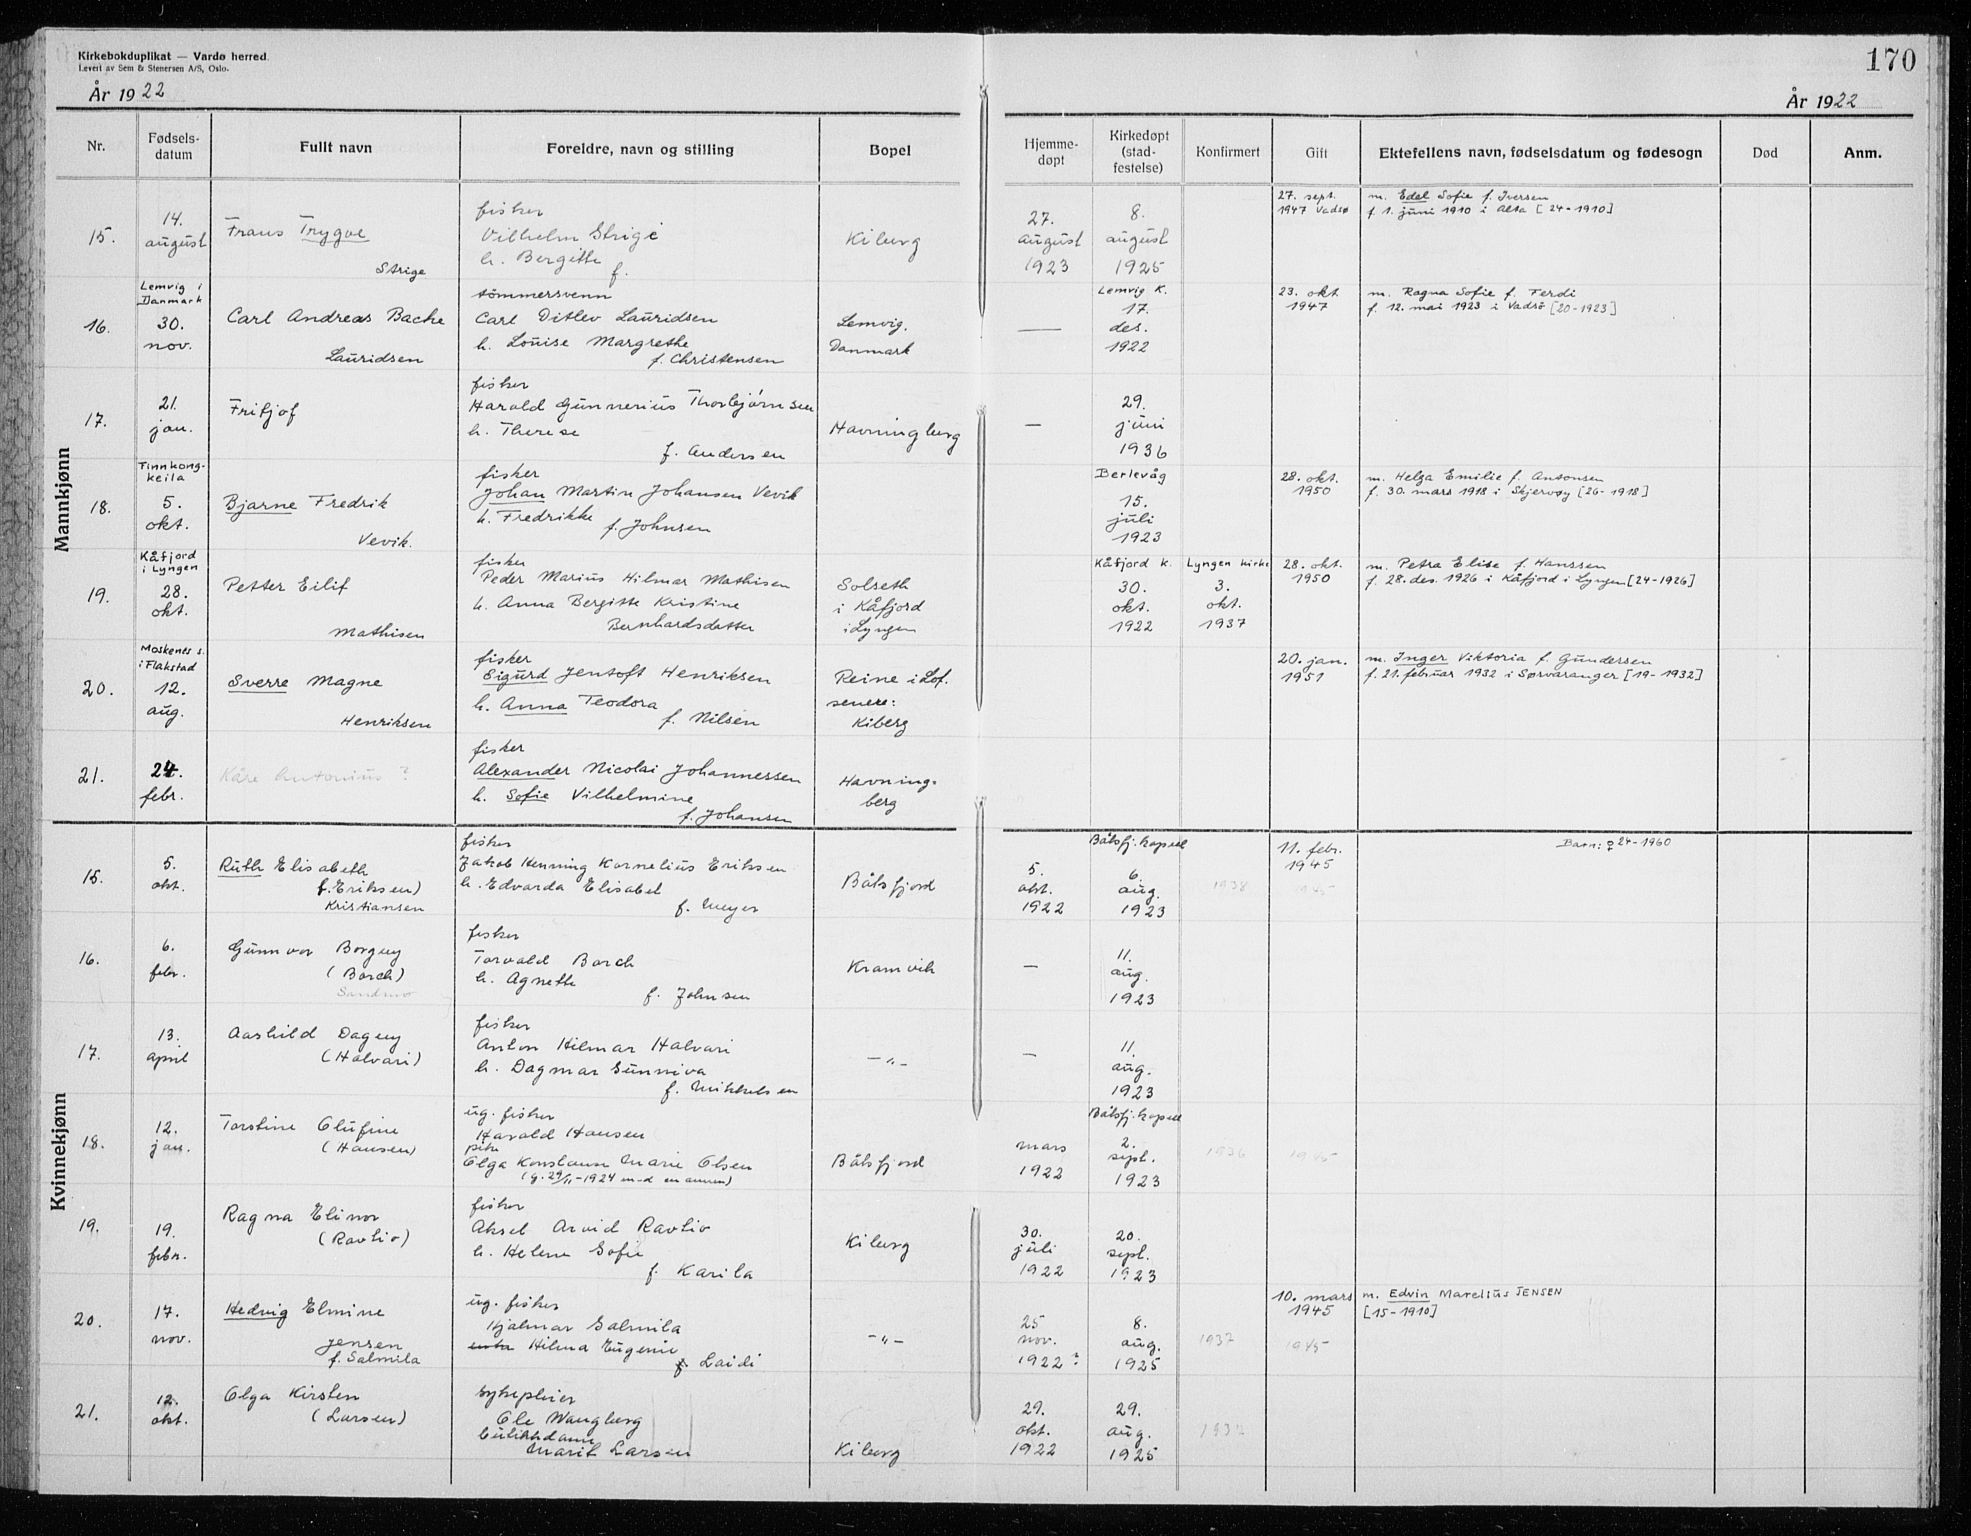 Kirkebokduplikat — Vardø herred.
Levert av Sem & Stenersen A/S, Oslo.
170
År 1922
År 1922
Nr.
Fødsels-
datum
Fullt navn
Foreldre, navn og stilling
Bopel
Hjemme-
døpt
Kirkedøpt
(stad-
festelse)
Konfirmert
Gift
Ektefellens navn, fødselsdatum og fødesogn
Død
Anm.
Mannkjønn
15.
14.
august
Frans Trygve
Strige
fisker
Vilhelm Strige
h. Bergitte
f.
Kiberg
27.
august
1923
8.
august
1925
27. sept.
1947 Vadsø
m. Edel Sofie f. Iversen
f. 1. juni 1910 i Alta [24-1910]
16.
Lemvig i
Danmark
30.
nov.
Carl Andreas Bache
Lauridsen
tömmersvenn
Carl Ditlev Lauridsen
h. Louise Margrethe
f. Christensen
Lemvig.
Danmark
—
Lemvig K.
17.
des.
1922
23. okt
1947
m. Ragna Sofie f. Ferdi
f. 12. mai 1923 i Vadsö [20-1923]
17.
21.
jan.
Fritjof
fisker
Harald Gunnerius Thorbjørnsen
h. Therese
f. Andersen
Havningberg
—
29.
juni
1936
18.
Finnkong-
keila
5.
okt.
Bjarne Fredrik
Vevik.
fisker
Johan Martin Johansen Vevik
h. Fredrikke
f. Johnsen
Berlevåg
15.
juli
1923
28. okt.
1950
m. Helga Emilie f. Antonsen
f. 30. mars 1918 i Skjervøy [26-1918]
19.
Kåfjord
i Lyngen
28.
okt.
Petter Eilif
Mathisen
fisker
Peder Marius Hilmar Mathisen
h. Anna Bergitte Kristine
Bernhardsdatter
Solseth
i Kåfjord
i Lyngen
Kåfjord k.
30.
okt.
1922
Lyngen kirke
3.
okt.
1937
28. okt.
1950
m. Petra Elise f. Hanssen
f. 28. des. 1926 i Kåfjord i Lyngen [24-1926]
20.
Moskenes s.
i Flakstad
12.
aug.
Sverre Magne
Henriksen
fisker
Sigurd Jentoft Henriksen
h. Anna Teodora
f. Nilsen
Reine i Lof.
senere:
Kiberg
20. jan.
1951
m. Inger Viktoria f. Gundersen
f. 21. februar 1932 i Sørvaranger [19-1932]
21.
24.
febr.
Kåre Antonius ?
fisker
Alexander Nicolai Johannessen
h. Sofie Vilhelmine
f. Johansen
Havning-
berg
Kvinnekjønn
15.
5.
okt.
Ruth Elisabeth
f. Eriksen)
Kristiansen
fisker
Jakob Henning Kornelius Eriksen
h. Edvarda Elisabet
f. Meyer
Båtsfjord
5.
okt.
1922
Båtsfj. kapell
6.
aug.
1923
1938
11. febr.
1945
1945
Barn: ♀ 24-1960
16.
6.
febr.
Gunnvor Borgny
(Borch)
Sandmo
fisker
Torvald Borch
h. Agnethe
f. Johnsen
Kramvik
—
11.
aug.
1923
17.
13.
april
Aashild Dagny
(Halvari)
fisker
Anton Hilmar Halvari
h. Dagmar Gunniva
f. Mikkelsen
—"—
—
11.
aug.
1923
18.
12.
jan.
Torstine Olufine
(Hansen)
ug. fisker
Harald Hansen
pike
Olga Konstanse Marie Olsen
(g. 29/11-1924 m-d en annen)
Båtsfjord
mars
1922
Båtsfj. kapell
2.
sept.
1923
1936
1945
19.
19.
febr.
Ragna Elinor
(Ravtio)
fisker
Aksel Arvid Ravtio
h. Helene Sofie
f. Karila
Kiberg
30.
juli
1922
20.
sept.
1923
20.
17.
nov.
Hedvig Elmine
Jensen
f. Salmila
ug. fisker
Hjalmar Salmila
Hilma Eugenie
f. Laidi
—"—
25
nov.
1922 ?
8.
aug.
1925
1937
10. mars
1945
1945
m. Edvin Marelius JENSEN
[15-1910]
21.
12.
okt.
Olga Kirsten
(Larsen)
sykepleier
Ole Wangberg
butikkdame
Marit Larsen
Kiberg
29.
okt.
1922
29.
aug.
1925
1937